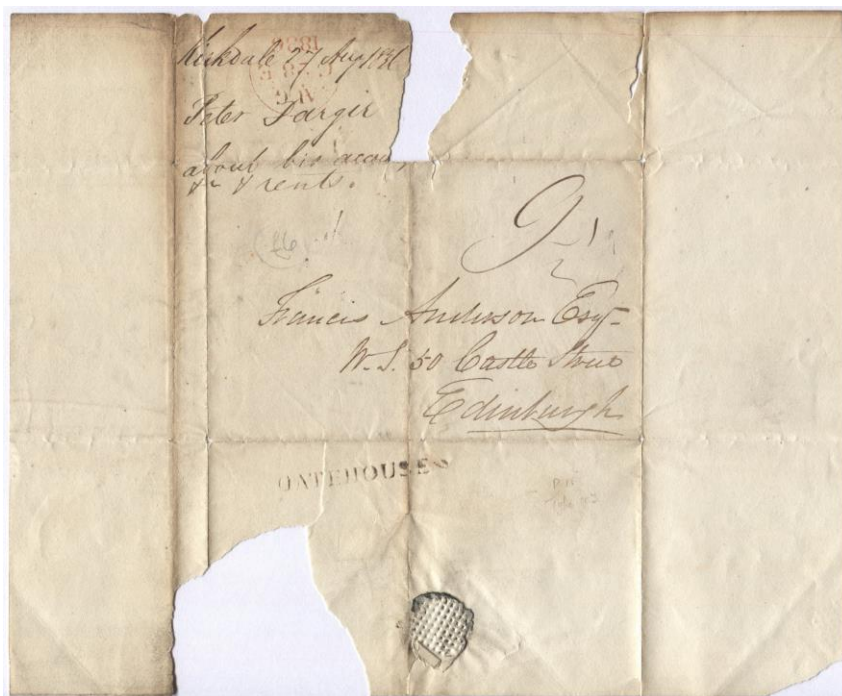 Kirkdale 27 Aug 1836
1836
AUG
Peter Farger
about his accou
& rents.
9
Francis Anderson Esqr
W.S. 50 Castle Street
Edinburgh
GATEHOUSE